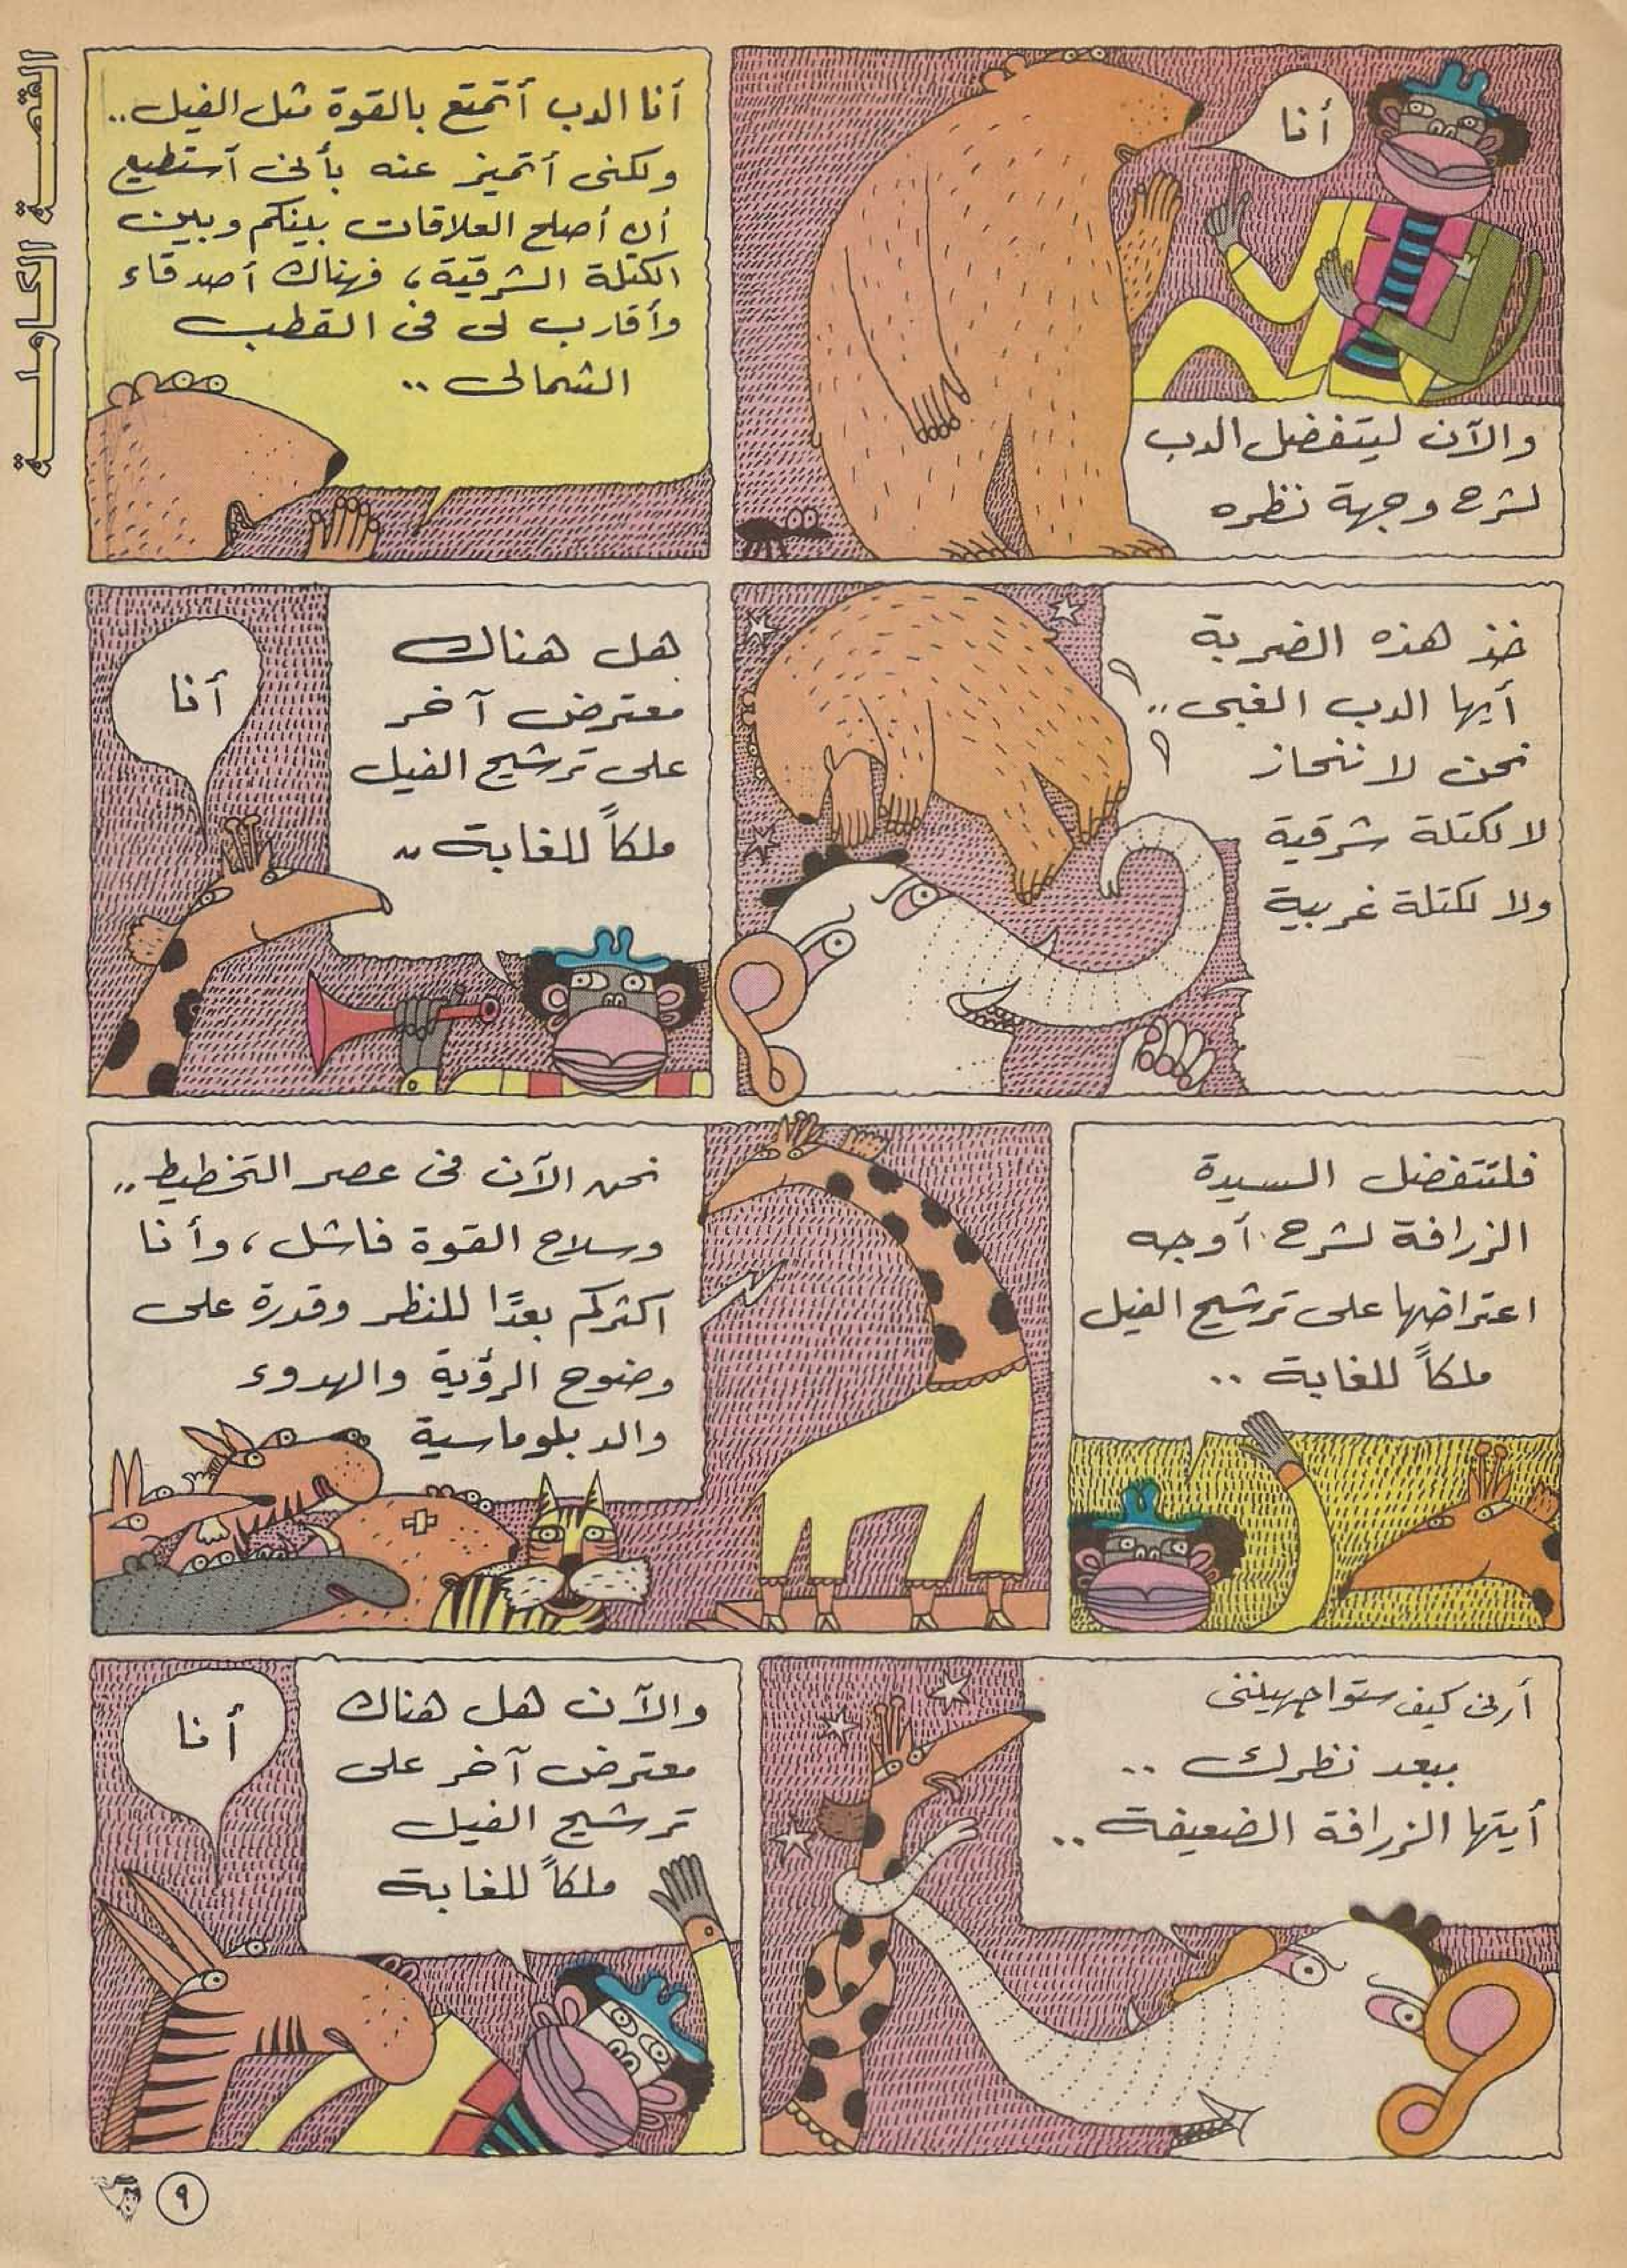 القصة الكاملة
أنا
والآن ليتفضل الدب
لشرح وجهة نظره
أنا الدب أتمتع بالقوة مثل الفيل..
ولكنى أتميز عنه بأنى أستطيع
أن أصلح العلاقات بينكم وبين
الكتلة الشرقية، فهناك أصدقاء
وأقارب لى فى القطب
الشمالى ..
خذ هذه الضربة
أيها الدب الغبى ..
نحن لا ننحاز
لا لكتلة شرقية
ولا لكتلة غربية
هل هناك
معترض آخر
على ترشيح الفيل
ملكاً للغابة ..
أنا
فلتتفضل السيدة
الزرافة لشرح أوجه
اعتراضها على ترشيح الفيل
ملكاً للغابة ..
نحن الآن فى عصر التخطيط ..
وسلاح القوة فاشل، وأنا
أكثركم بعدًا للنظر وقدرة على
وضوح الرؤية والهدوء
والدبلوماسية
أرنى كيف ستواجهيننى
ببعد نظرك ..
أيتها الزرافة الضعيفة ..
والآن هل هناك
معترض آخر على
ترشيح الفيل
ملكاً للغابة
أنا
٩